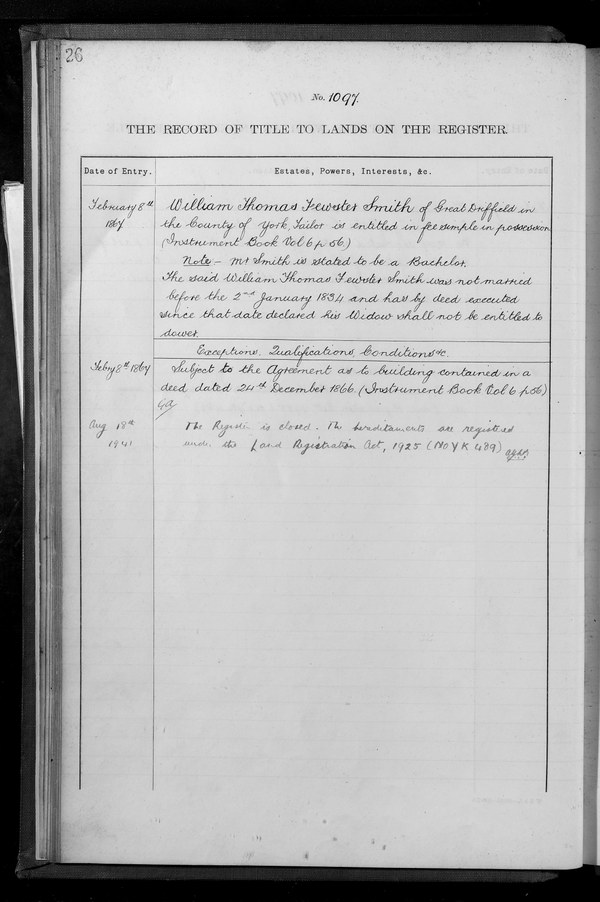 26
No. 1097.
THE RECORD OF TITLE TO LANDS ON THE REGISTER.
Date of Entry.
Estates, Powers, Interests, &c.
February 8th
1867
William Thomas Fewster Smith of Great Driffield in
the County of York, Tailor is entitled in fee simple in possession
(Instrument Book Vol 6 p 56.)
Note – Mr Smith is stated to be a Bachelor.
The said William Thomas Fewster Smith was not married
before the 2nd January 1834 and has by deed executed
since that date declared his Widow shall not be entitled to
dower.
Exceptions, Qualifications, Conditions &c.
Feby 8th 1867
Subject to the Agreement as to building contained in a
deed dated 24th December 1866. (Instrument Book Vol 6 p 56)
Aug 18th
1941
The Register is closed. The hereditaments are registered
under the Land Registration Act, 1925 (No YK 489)